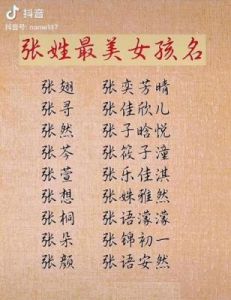 抖音
抖音号: name147
张姓最美女孩名
张翅 张奕芳晴
张寻 张佳欣儿
张然 张子晗悦
张芩 张筱子潼
张萱 张乐佳淇
张想 张姝雅然
张桐 张语濛濛
张朵 张锦初一
张颜 张语安然